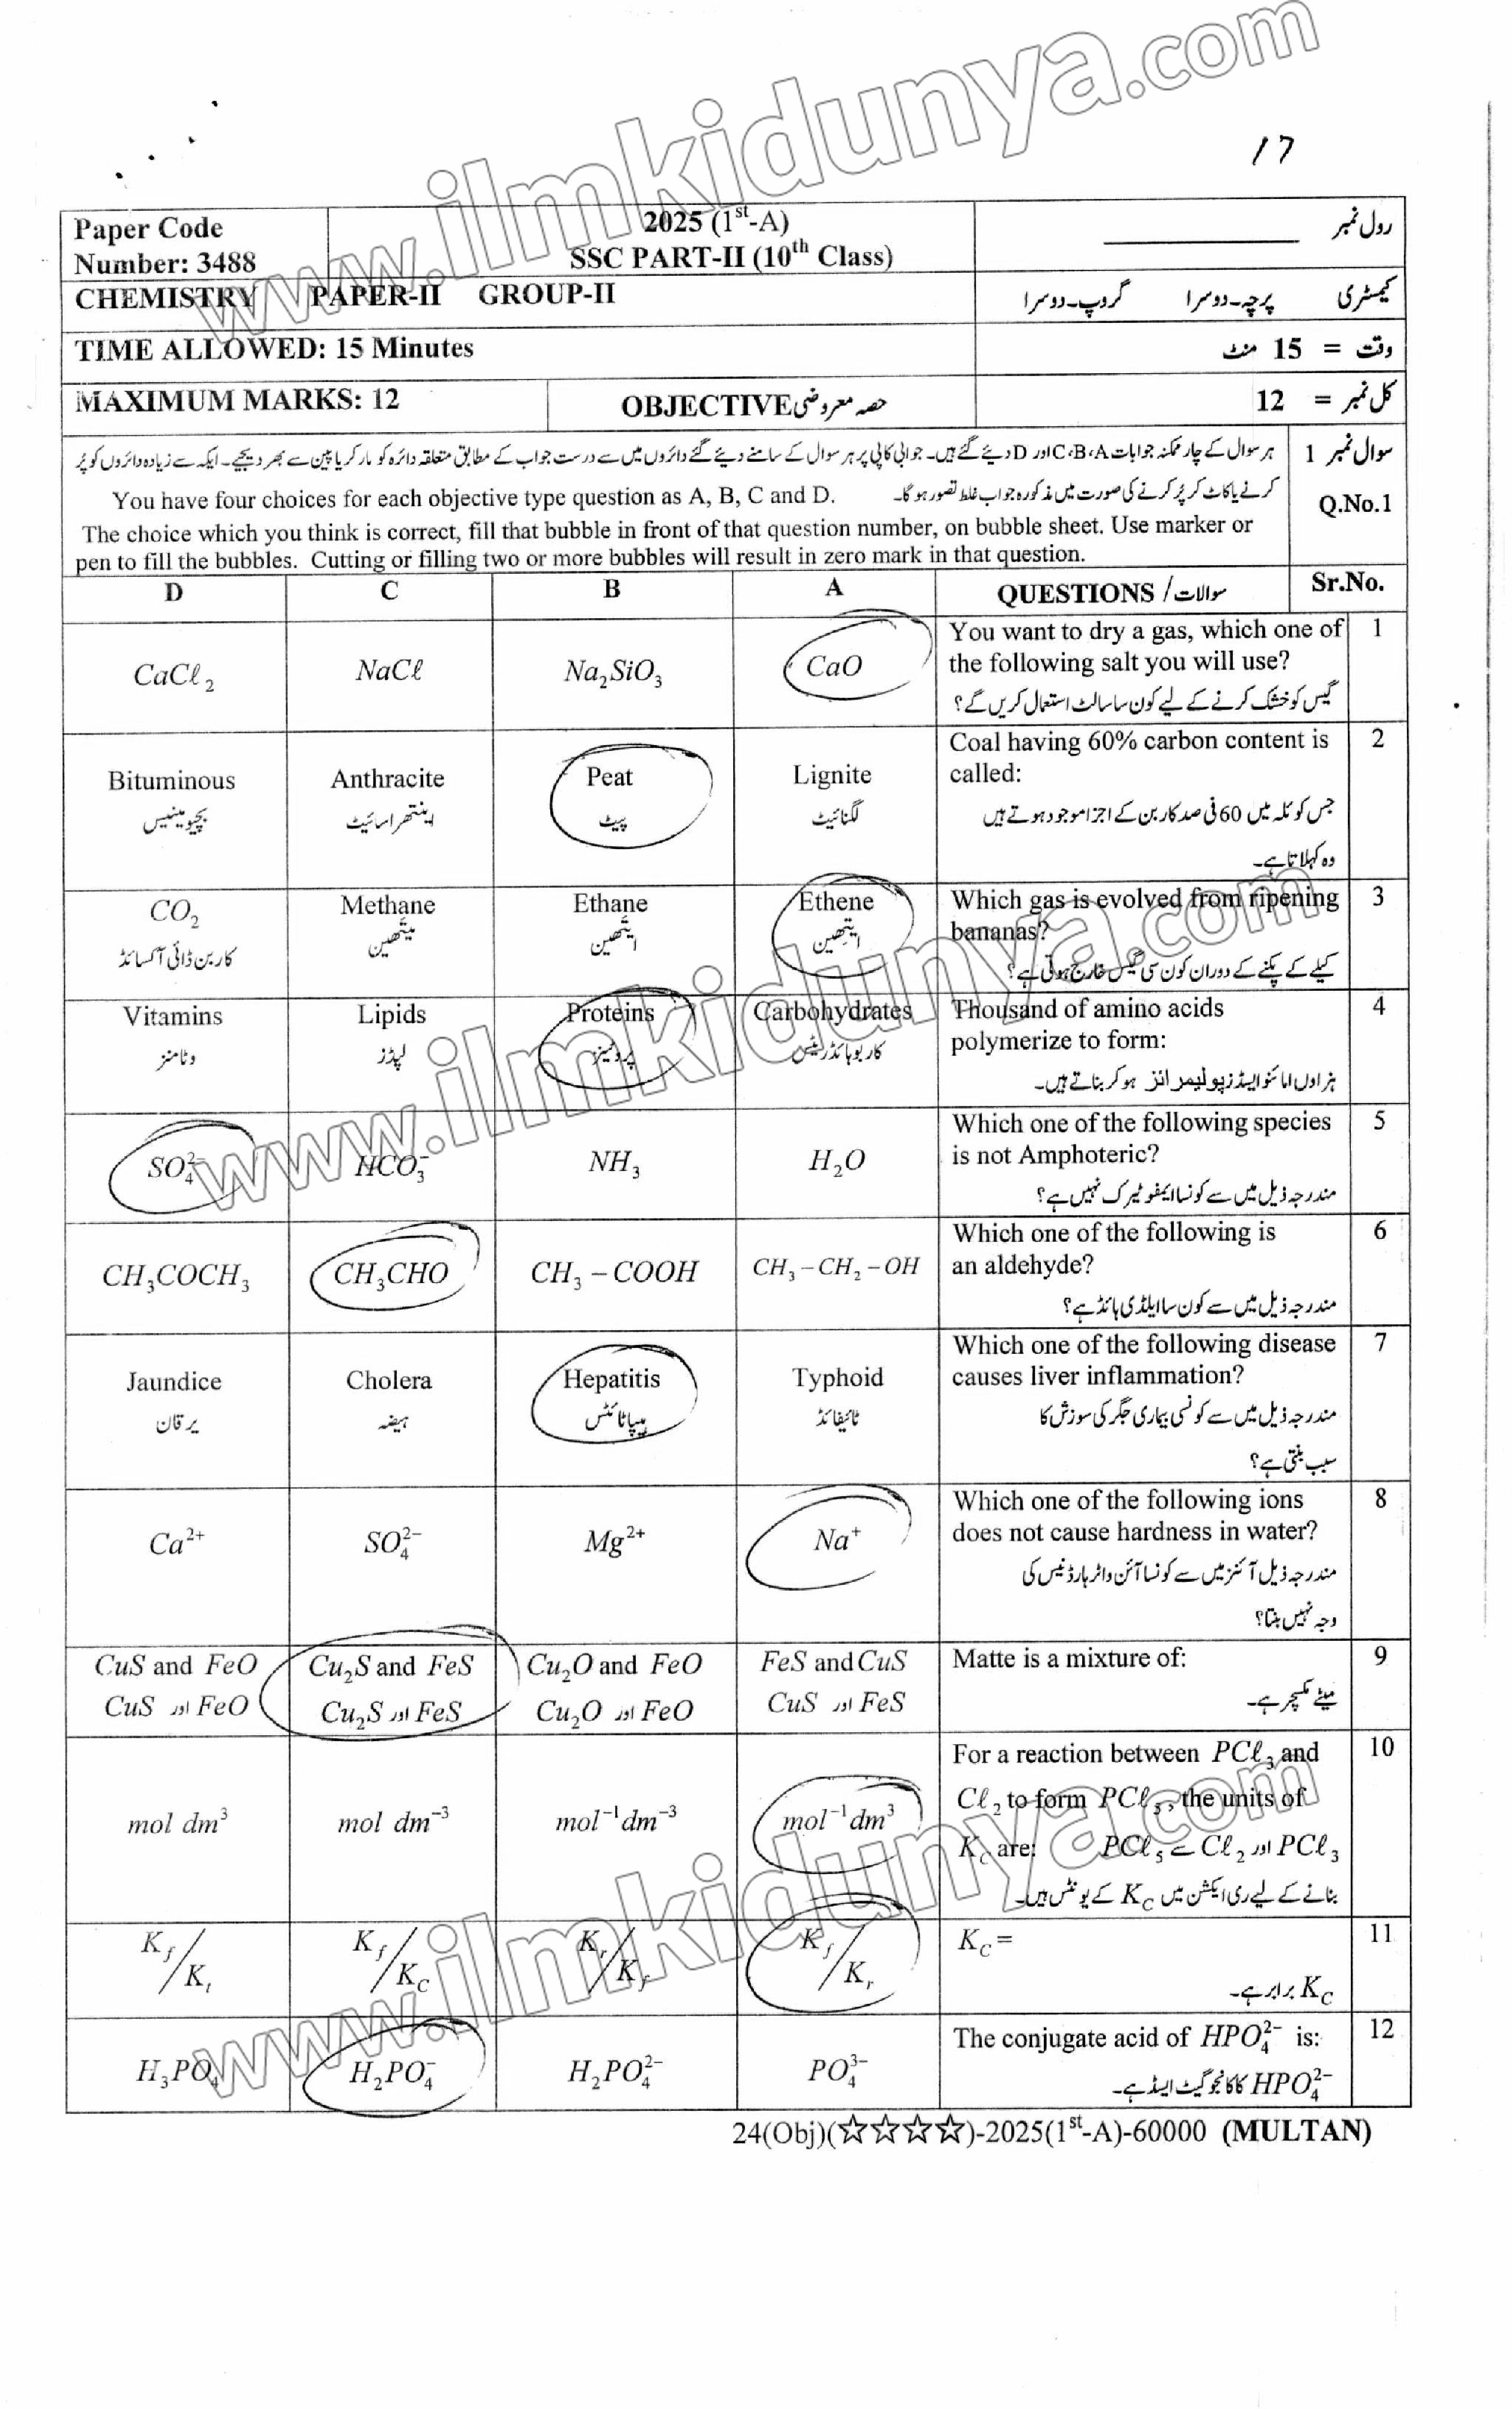 www.ilmkidunya.com
17
Paper Code
Number: 3488
2025 (1st-A)
SSC PART-II (10th Class)
رول نمبر
CHEMISTRY PAPER-II GROUP-II
کیمسٹری پرچہ۔دوسرا گروپ۔دوسرا
TIME ALLOWED: 15 Minutes
وقت = 15 منٹ
MAXIMUM MARKS: 12
OBJECTIVE حصہ معروضی
کل نمبر = 12
سوال نمبر 1
Q.No.1
ہر سوال کے چار ممکنہ جوابات C،B،A اور D دیئے گئے ہیں۔ جوابی کاپی پر ہر سوال کے سامنے دیئے گئے دائروں میں سے درست جواب کے مطابق متعلقہ دائرہ کو مارکر یا پین سے بھر دیجیے۔ ایک سے زیادہ دائروں کو پُر
کرنے یا کاٹ کر پُر کرنے کی صورت میں مذکورہ جواب غلط تصور ہو گا۔
You have four choices for each objective type question as A, B, C and D.
The choice which you think is correct, fill that bubble in front of that question number, on bubble sheet. Use marker or
pen to fill the bubbles. Cutting or filling two or more bubbles will result in zero mark in that question.
D C B A QUESTIONS / سوالات Sr.No.
You want to dry a gas, which one of 1
the following salt you will use?
گیس کو خشک کرنے کے لیے کون سا سالٹ استعمال کریں گے؟
CaCℓ₂ NaCℓ Na₂SiO₃ CaO
Coal having 60% carbon content is 2
called:
جس کوئلہ میں 60 فی صد کاربن کے اجزا موجود ہوتے ہیں
وہ کہلاتا ہے۔
Bituminous Anthracite Peat Lignite
بچیومینیس اینتھراسائیٹ پیٹ لگنائیٹ
Which gas is evolved from ripening 3
bananas?
کیلے کے پکنے کے دوران کون سی گیس خارج ہوتی ہے؟
CO₂ Methane Ethane Ethene
کاربن ڈائی آکسائڈ میتھین ایتھین ایتھین
Thousand of amino acids 4
polymerize to form:
ہزاروں امائنو ایسڈز پولیمرائز ہو کر بناتے ہیں۔
Vitamins Lipids Proteins Carbohydrates
وٹامنز لپڈز پروٹینز کاربوہائڈریٹس
Which one of the following species 5
is not Amphoteric?
مندرجہ ذیل میں سے کونسا ایمفوٹیرک نہیں ہے؟
SO₄²⁻ HCO₃⁻ NH₃ H₂O
Which one of the following is 6
an aldehyde?
مندرجہ ذیل میں سے کون سا ایلڈی ہائڈ ہے؟
CH₃COCH₃ CH₃CHO CH₃ – COOH CH₃ – CH₂ – OH
Which one of the following disease 7
causes liver inflammation?
مندرجہ ذیل میں سے کونسی بیماری جگر کی سوزش کا
سبب بنتی ہے؟
Jaundice Cholera Hepatitis Typhoid
یرقان ہیضہ ہیپاٹائٹس ٹائیفائڈ
Which one of the following ions 8
does not cause hardness in water?
مندرجہ ذیل آئنز میں سے کونسا آئن واٹر ہارڈنیس کی
وجہ نہیں بنتا؟
Ca²⁺ SO₄²⁻ Mg²⁺ Na⁺
Matte is a mixture of: 9
میٹے مکسچر ہے۔
CuS and FeO Cu₂S and FeS Cu₂O and FeO FeS and CuS
CuS اور FeO Cu₂S اور FeS Cu₂O اور FeO CuS اور FeS
For a reaction between PCℓ₃ and 10
Cℓ₂ to form PCℓ₅, the units of
K_C are: PCℓ₃ اور Cℓ₂ سے PCℓ₅
بنانے کے لیے ری ایکشن میں K_C کے یونٹس ہیں۔
mol dm³ mol dm⁻³ mol⁻¹dm⁻³ mol⁻¹dm³
K_C = 11
K_C برابر ہے۔
K_f/K_t K_f/K_C K_r/K_f K_f/K_r
The conjugate acid of HPO₄²⁻ is: 12
HPO₄²⁻ کا کانجوگیٹ ایسڈ ہے۔
H₃PO₄ H₂PO₄⁻ H₂PO₄²⁻ PO₄³⁻
24(Obj)(☆☆☆☆)-2025(1st-A)-60000 (MULTAN)
www.ilmkidunya.com
www.ilmkidunya.com